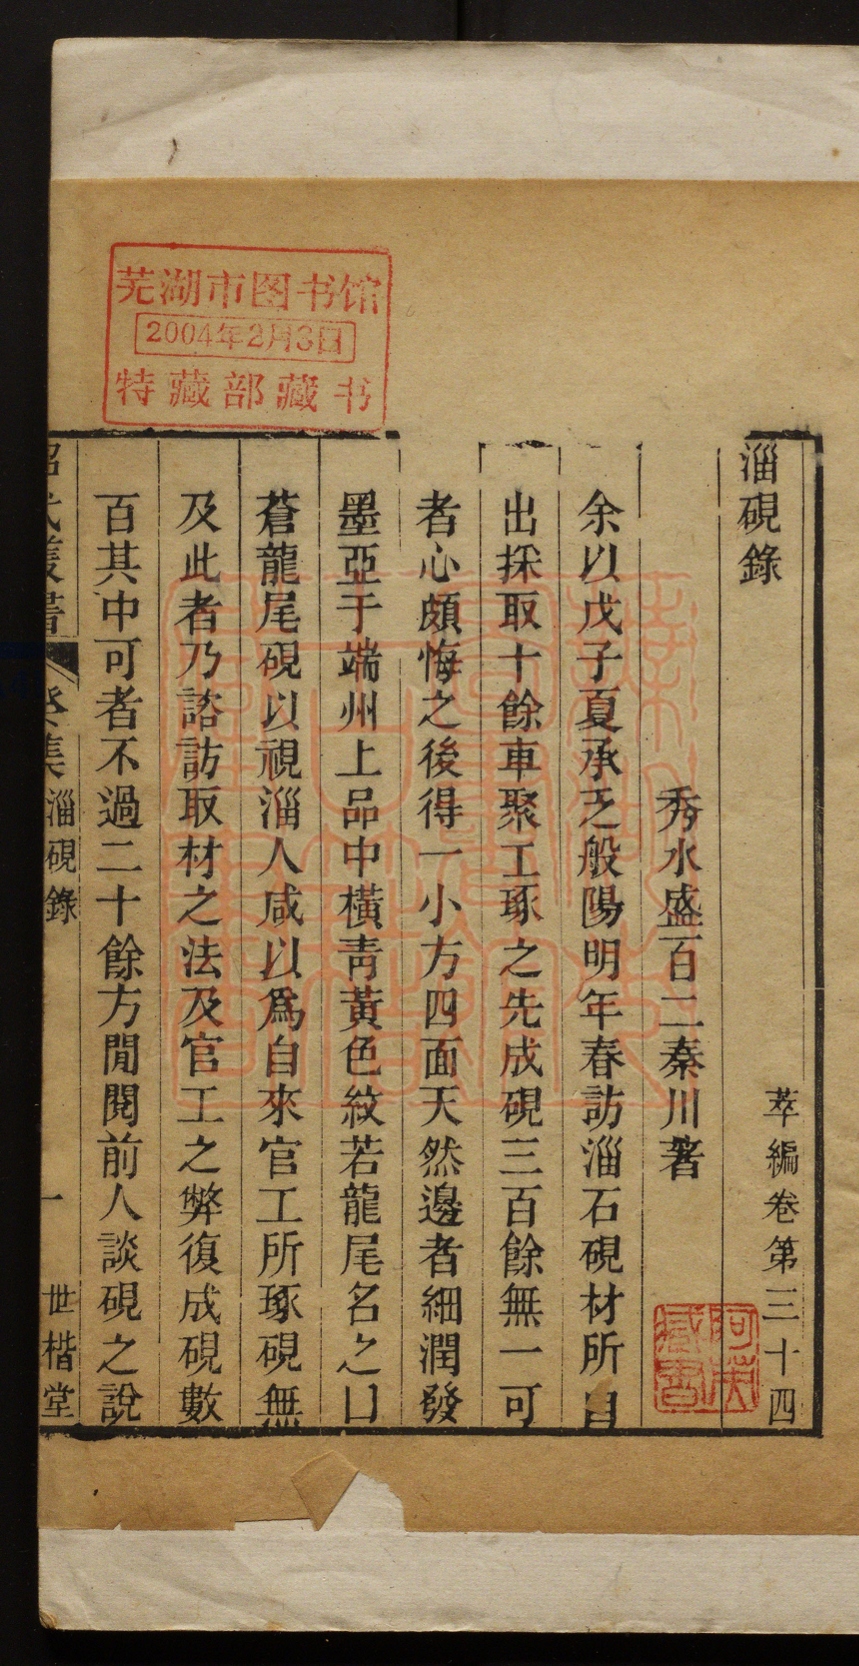 淄硯錄
萃編卷第三十四
秀水盛百二秦川著
余以戊子夏承乏般陽明年春訪淄石硯材所自
出採取十餘車聚工琢之先成硯三百餘無一可
者心頗悔之後得一小方四面天然邊者細潤發
墨亞于端州上品中橫青黃色紋若龍尾名之曰
蒼龍尾硯以視淄人咸以爲自來官工所琢硯無
及此者乃諮訪取材之法及官工之弊復成硯數
百其中可者不過二十餘方閒閱前人談硯之說
昭代叢書
癸集淄硯錄
一
世楷堂
芜湖市图书馆
2004年2月3日
特藏部藏书
阿英
藏書